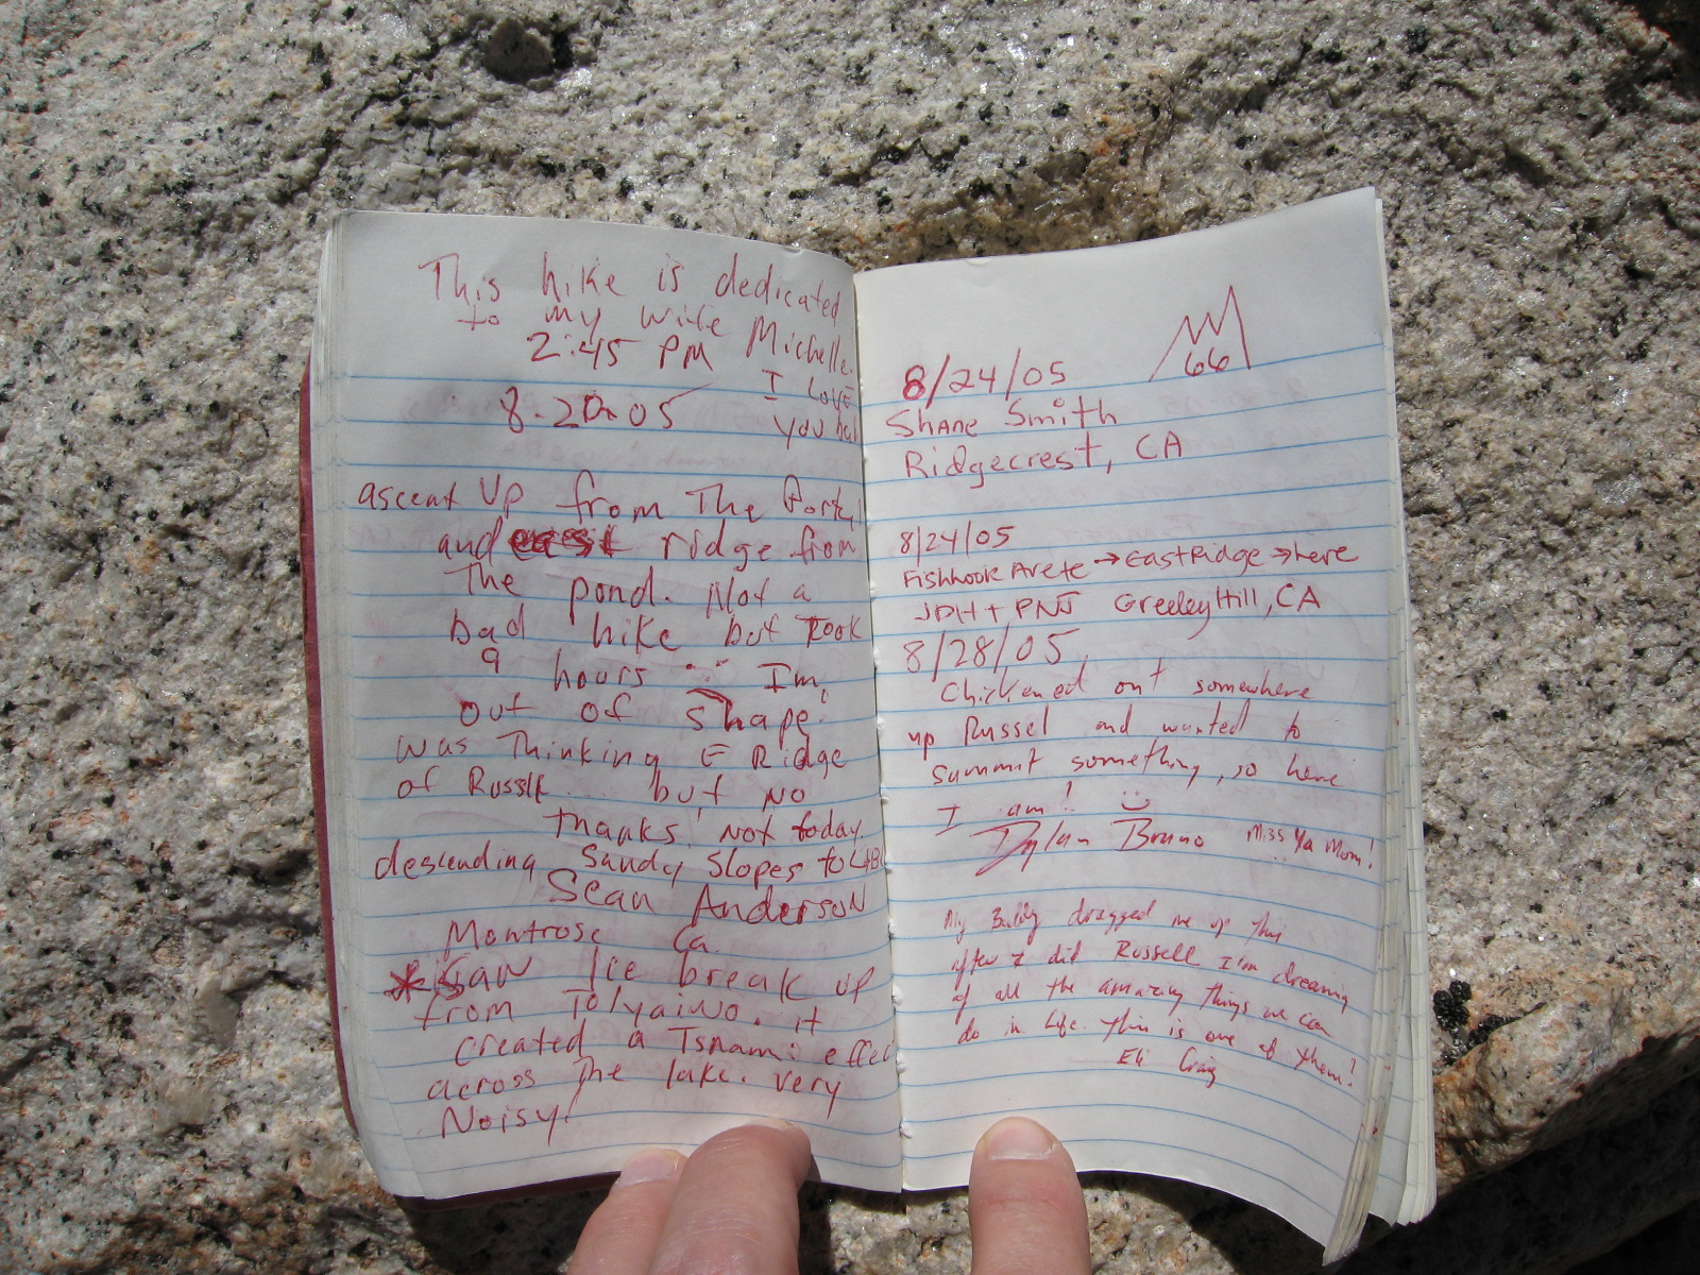 This hike is dedicated
to my wife Michelle.
2:45 PM
I LOVE
8.20.05
you
ascent UP from The
and east ridge from
The pond. Not a
bad hike but Took
9 hours Im
out of shape!
was Thinking E Ridge
of Russle.... but NO
thanks, Not today.
descending Sandy Slopes to
Sean Anderson
Montrose Ca.
* Saw Ice break up
from Tolyaiwo. it
created a Tsnami effec
across The lake. very
Noisy!
66
8/24/05
Shane Smith
Ridgecrest, CA
8/24/05
Fishhook Arete → East Ridge → here
JDH + PNJ Greeley Hill, CA
8/28/05
Chickened out somewhere
up Russel and wanted to
summit something, so here
I am!
Dylan Bruno Miss Ya Mom!
My Buddy dragged me up this
after I did Russell I'm dreaming
of all the amazing things we can
do in life. This is one of them!
Eli Craig